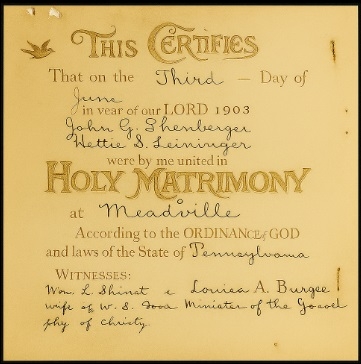 THIS CERTIFIES
That on the Third — Day of
June
in year of our LORD 1903
John G. Shenberger
Hettie S. Leininger
were by me united in
HOLY MATRIMONY
at Meadville
According to the ORDINANCE of GOD
and laws of the State of Pennsylvania
WITNESSES:
Wm L Louisa A. Burgee
wife of W. S. Minister of the Gospel
of Christ